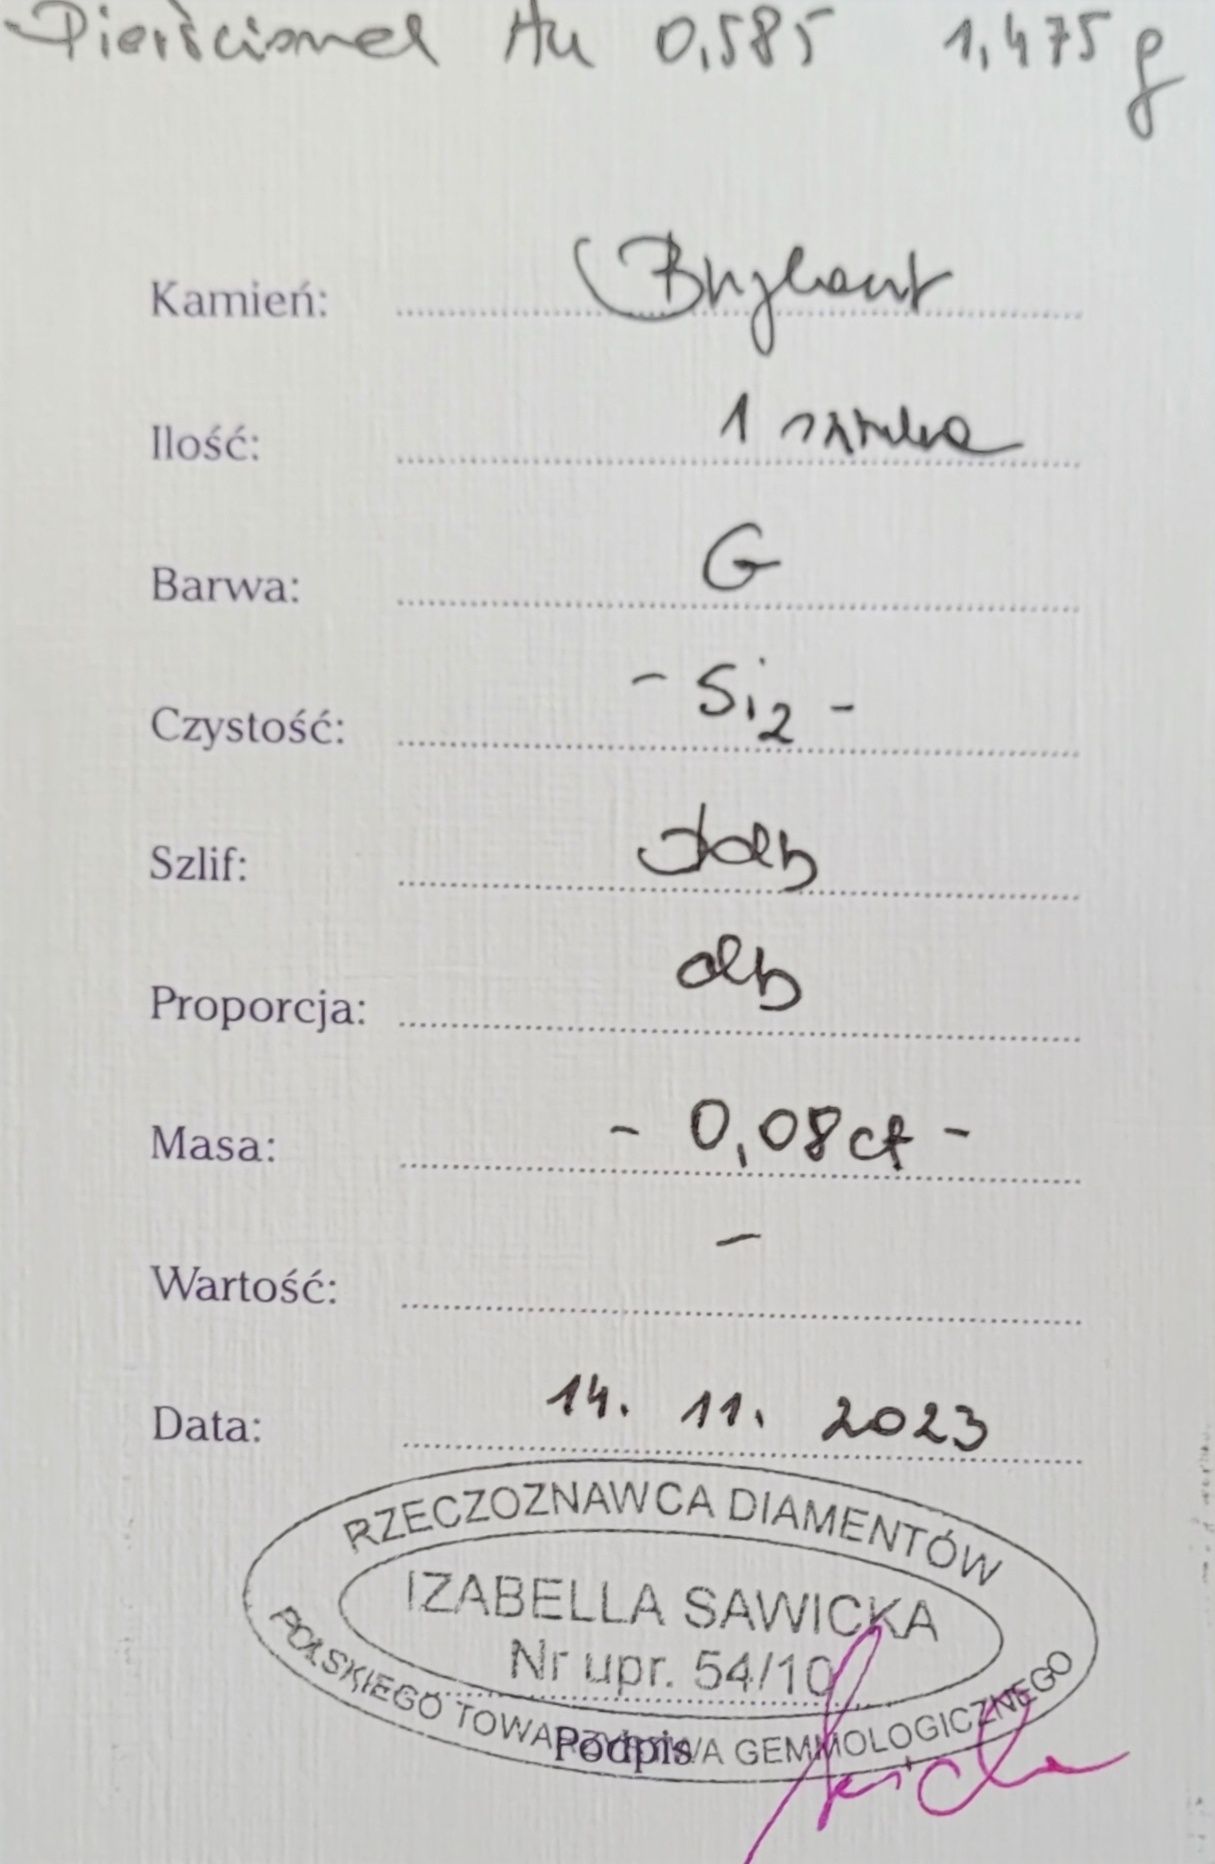 Pierścionek Au 0,585 1,475 g
Kamień: Brylant
Ilość: 1 sztuka
Barwa: G
Czystość: - Si2 -
Szlif: db
Proporcja: db
Masa: - 0,08 ct -
Wartość: -
Data: 14. 11. 2023
RZECZOZNAWCA DIAMENTÓW
IZABELLA SAWICKA
Nr upr. 54/10
POLSKIEGO TOWARZYSTWA GEMMOLOGICZNEGO
Podpis